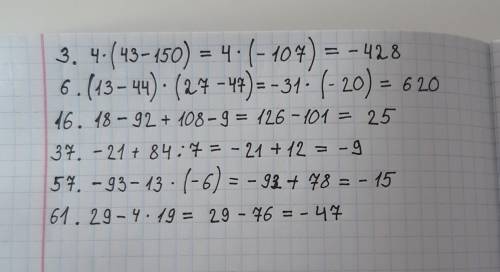 3. 4·(43-150) = 4·(-107) = -428
6. (13-44)·(27-47)=-31·(-20) = 620
16. 18-92+108-9 = 126-101 = 25
37. -21+84:7 = -21+12 = -9
57. -93-13·(-6) = -93+78 = -15
61. 29-4·19 = 29-76 = -47